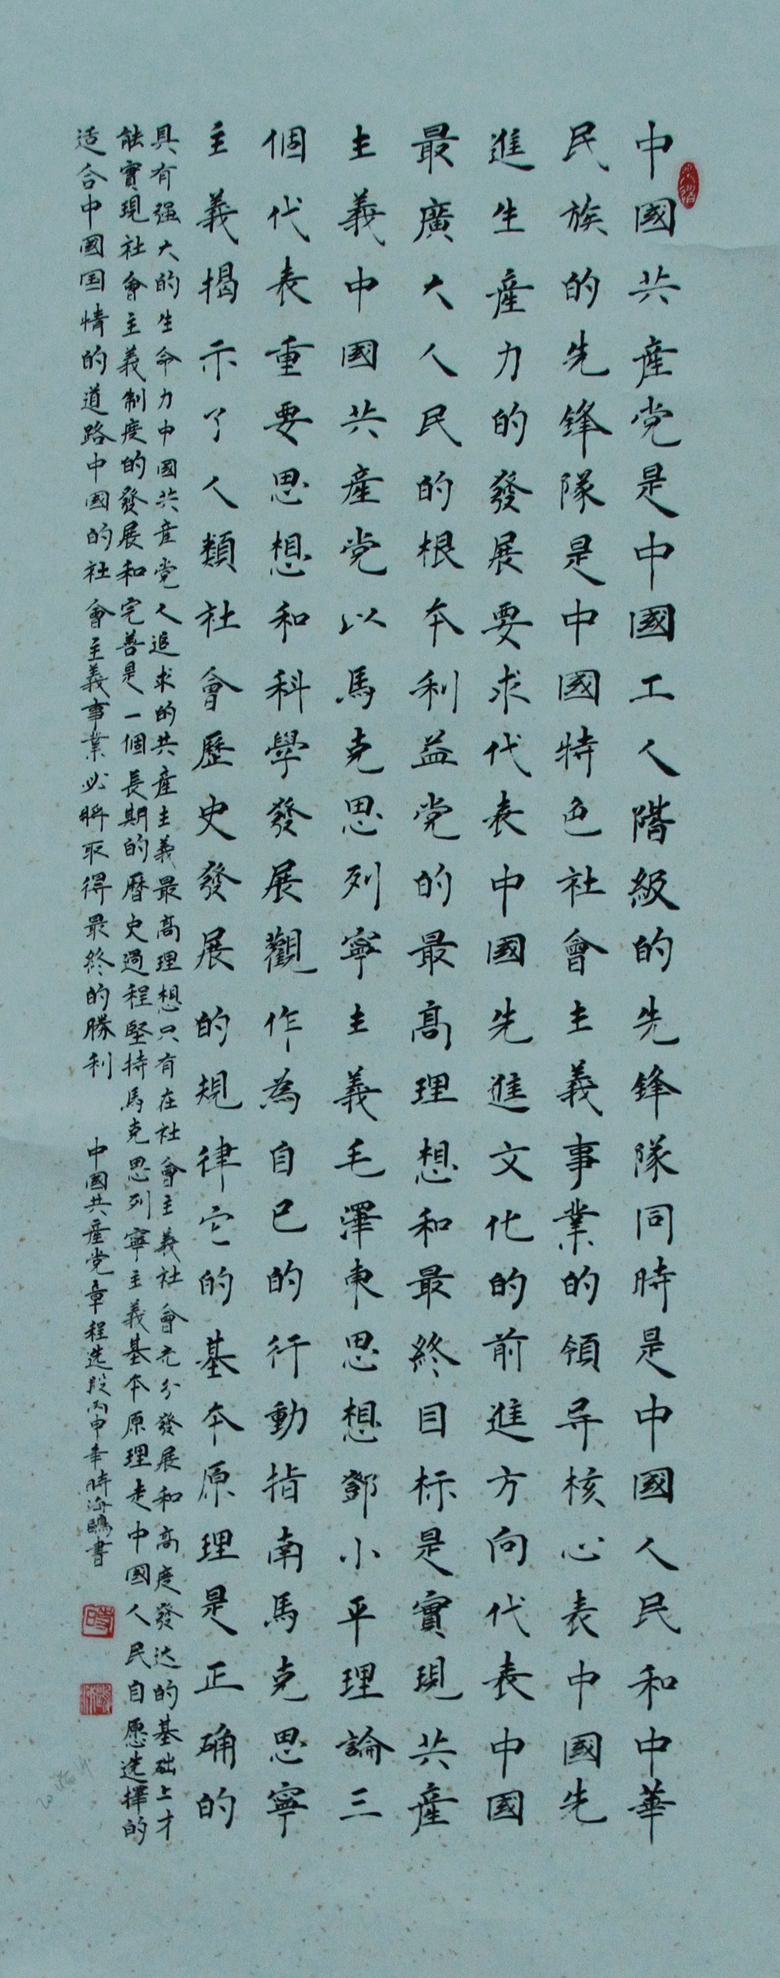 中國共産党是中國工人階級的先鋒隊同時是中國人民和中華
民族的先鋒隊是中國特色社會主義事業的領导核心表中國先
進生産力的發展要求代表中國先進文化的前進方向代表中國
最廣大人民的根本利益党的最高理想和最終目标是實現共産
主義中國共産党以馬克思列寧主義毛澤東思想鄧小平理論三
個代表重要思想和科學發展觀作為自己的行動指南馬克思寧
主義揭示了人類社會歷史發展的規律它的基本原理是正确的
具有强大的生命力中國共産党人追求的共産主義最高理想只有在社會主義社會充分發展和高度發达的基础上才
能實現社會主義制度的發展和完善是一個長期的曆史過程堅持馬克思列寧主義基本原理走中國人民自愿选擇的
适合中國国情的道路中國的社會主義事業必將取得最終的勝利
中國共産党章程选段丙申年時海鷗書